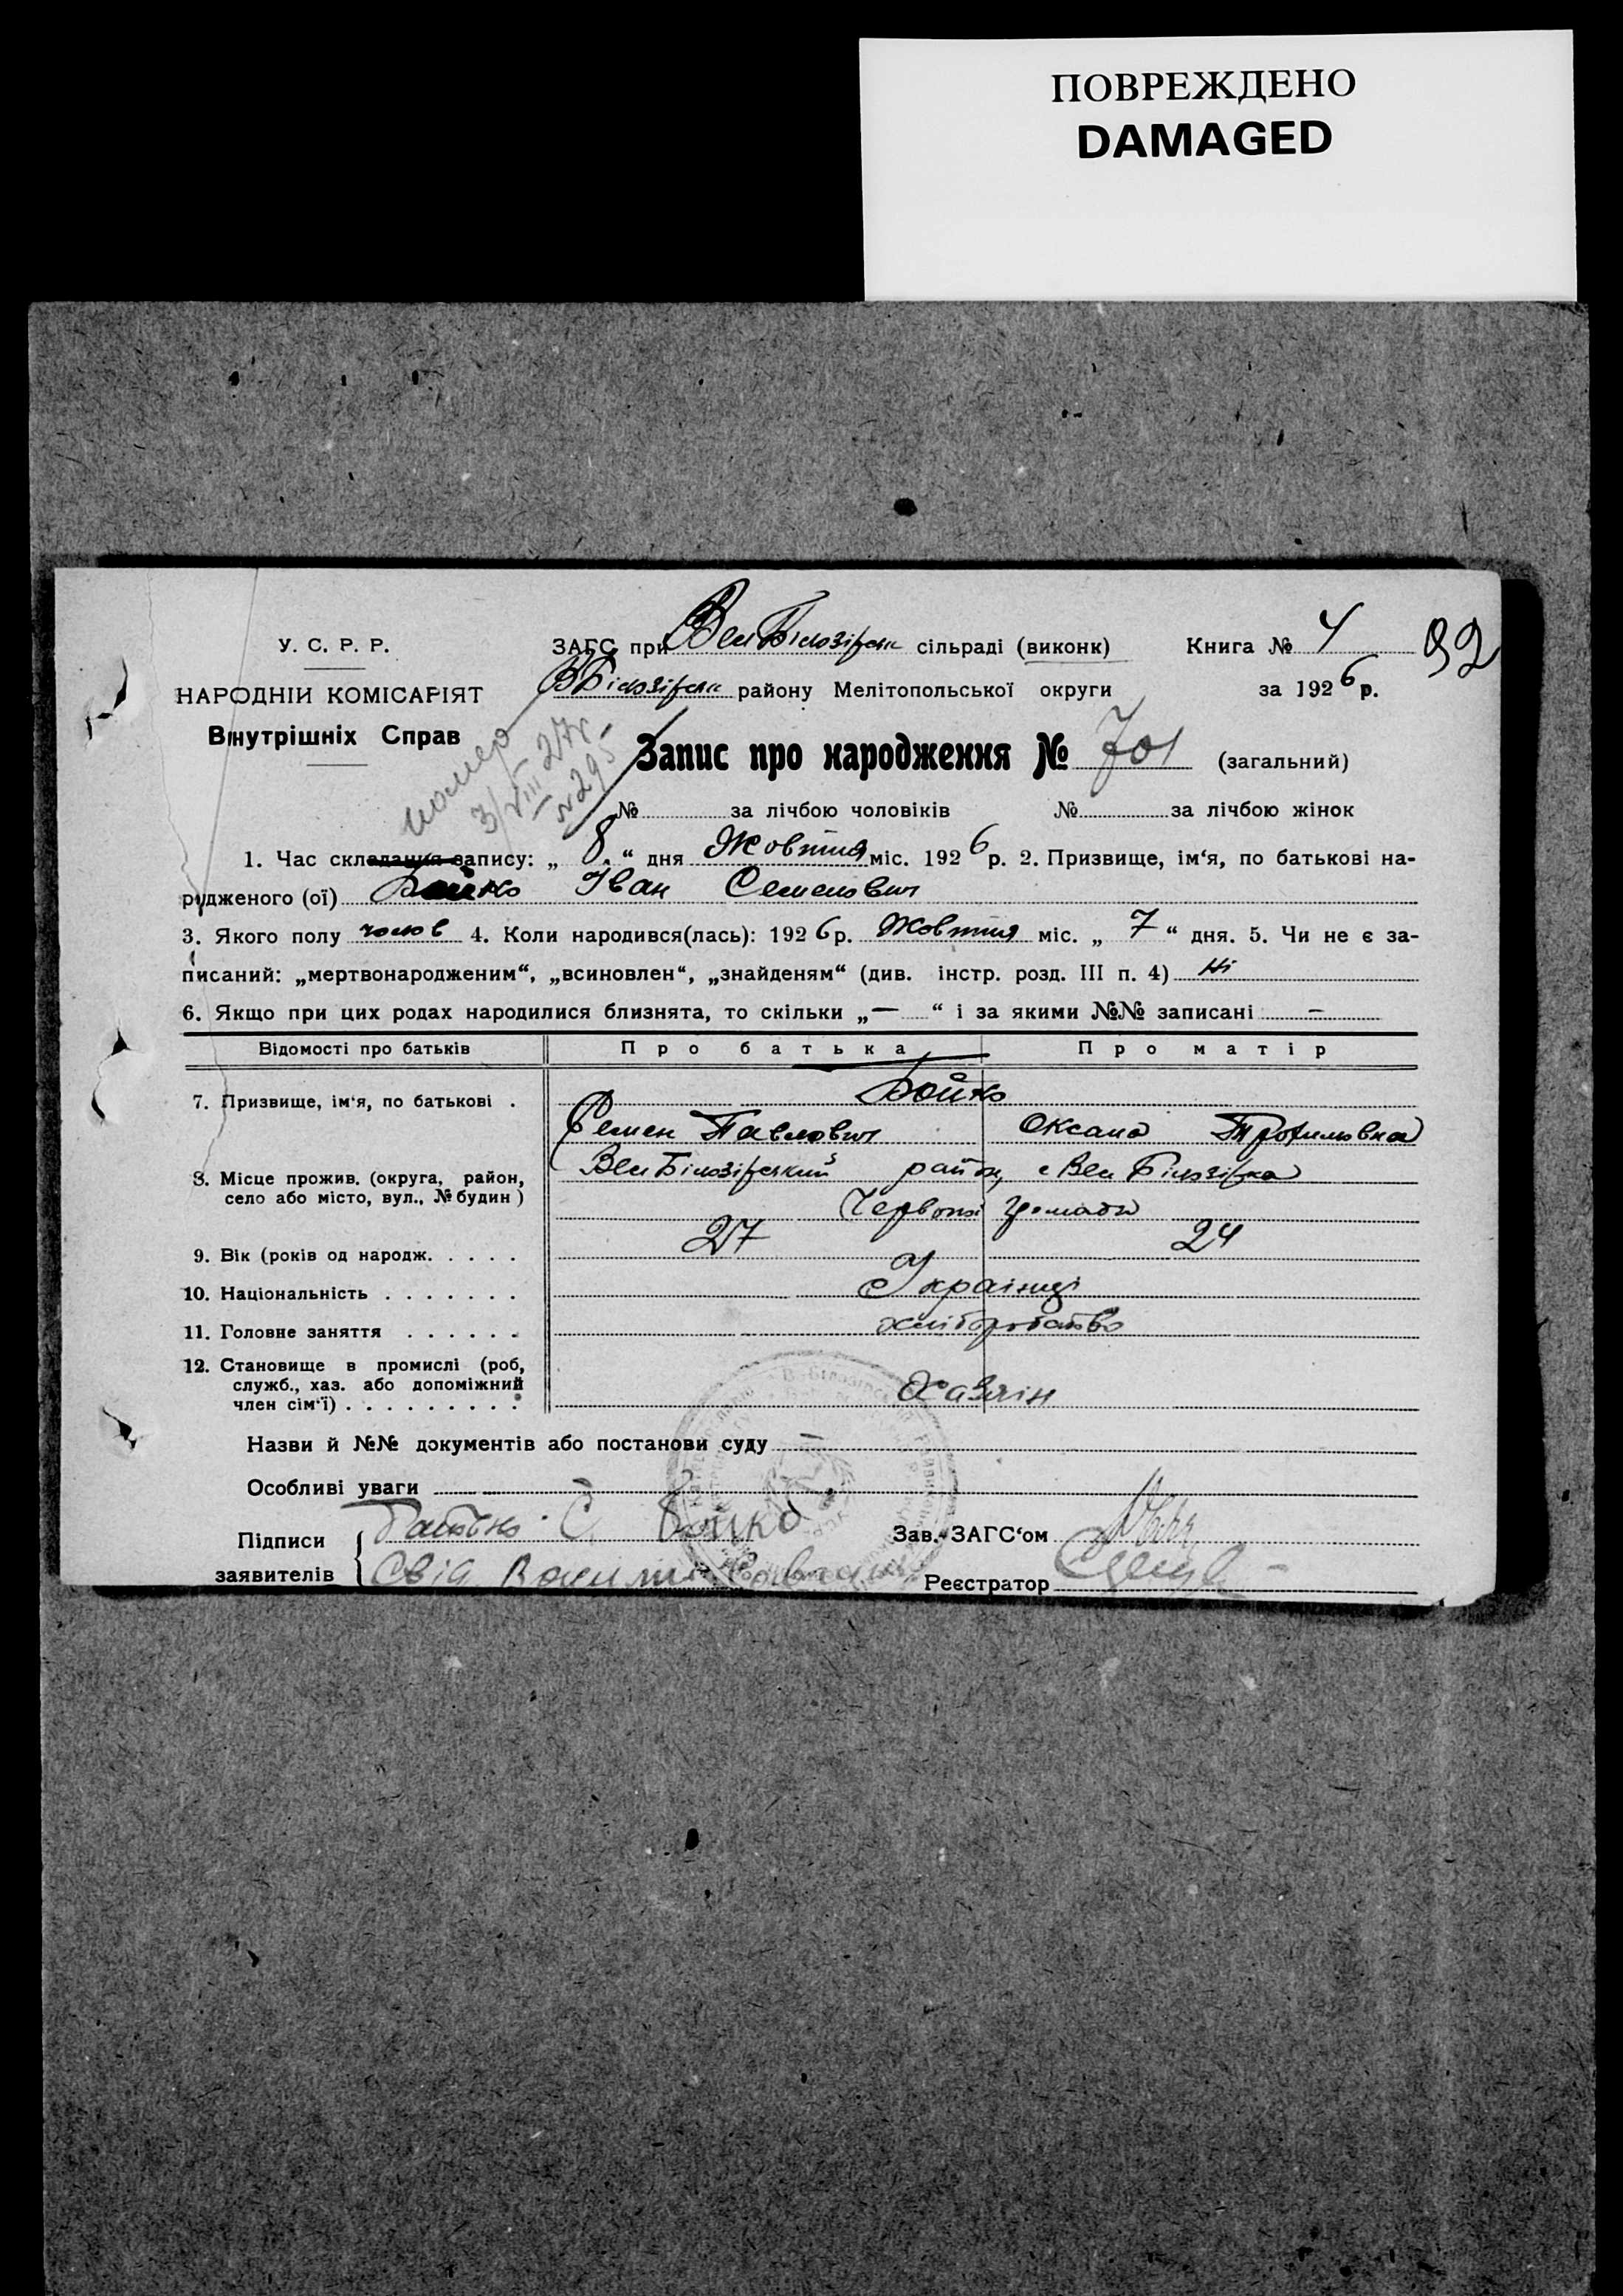 ПОВРЕЖДЕНО
DAMAGED
У. С. Р. Р.
НАРОДНІЙ КОМІСАРІЯТ
Внутрішніх Справ
ЗАГС при Вел Білозірськ сільраді (виконк)
В Білозірськ району Мелітопольської округи
Книга № 4
92
за 1926 р.
номер
3/VIII 27 г.
№ 295
Запис про народження № 701 (загальний)
№ за лічбою чоловіків № за лічбою жінок
1. Час складання запису: „ 8 “ дня Жовтня міс. 1926 р. 2. Призвище, ім‘я, по батькові на-
родженого (ої) Бойко Іван Семенович
3. Якого полу чолов 4. Коли народився(лась): 1926 р. Жовтня міс. „ 7 “ дня. 5. Чи не є за-
писаний: „мертвонародженим“, „всиновлен“, „знайденям“ (див. інстр. розд. III п. 4) Ні
6. Якщо при цих родах народилися близнята, то скільки „ — “ і за якими №№ записані —
Відомості про батьків Про батька Про матір
7. Призвище, ім‘я, по батькові . Бойко
Семен Павлович Оксана Трохимовна
8. Місце прожив. (округа, район,
село або місто, вул., № будин)
Вел Білозірський район, с Вел Білозірка
Червоної громади
9. Вік (років од народж. . . . . 27 24
10. Національність . . . . . . . Українці
11. Головне заняття . . . . . . хліборобство
12. Становище в промислі (роб,
служб., хаз. або допоміжний
член сім‘ї) . . . . . . . . .
Хазяїн
Назви й №№ документів або постанови суду —
Особливі уваги
Підписи
заявителів
Батько С Бойко
Зав. ЗАГС‘ом
Реєстратор